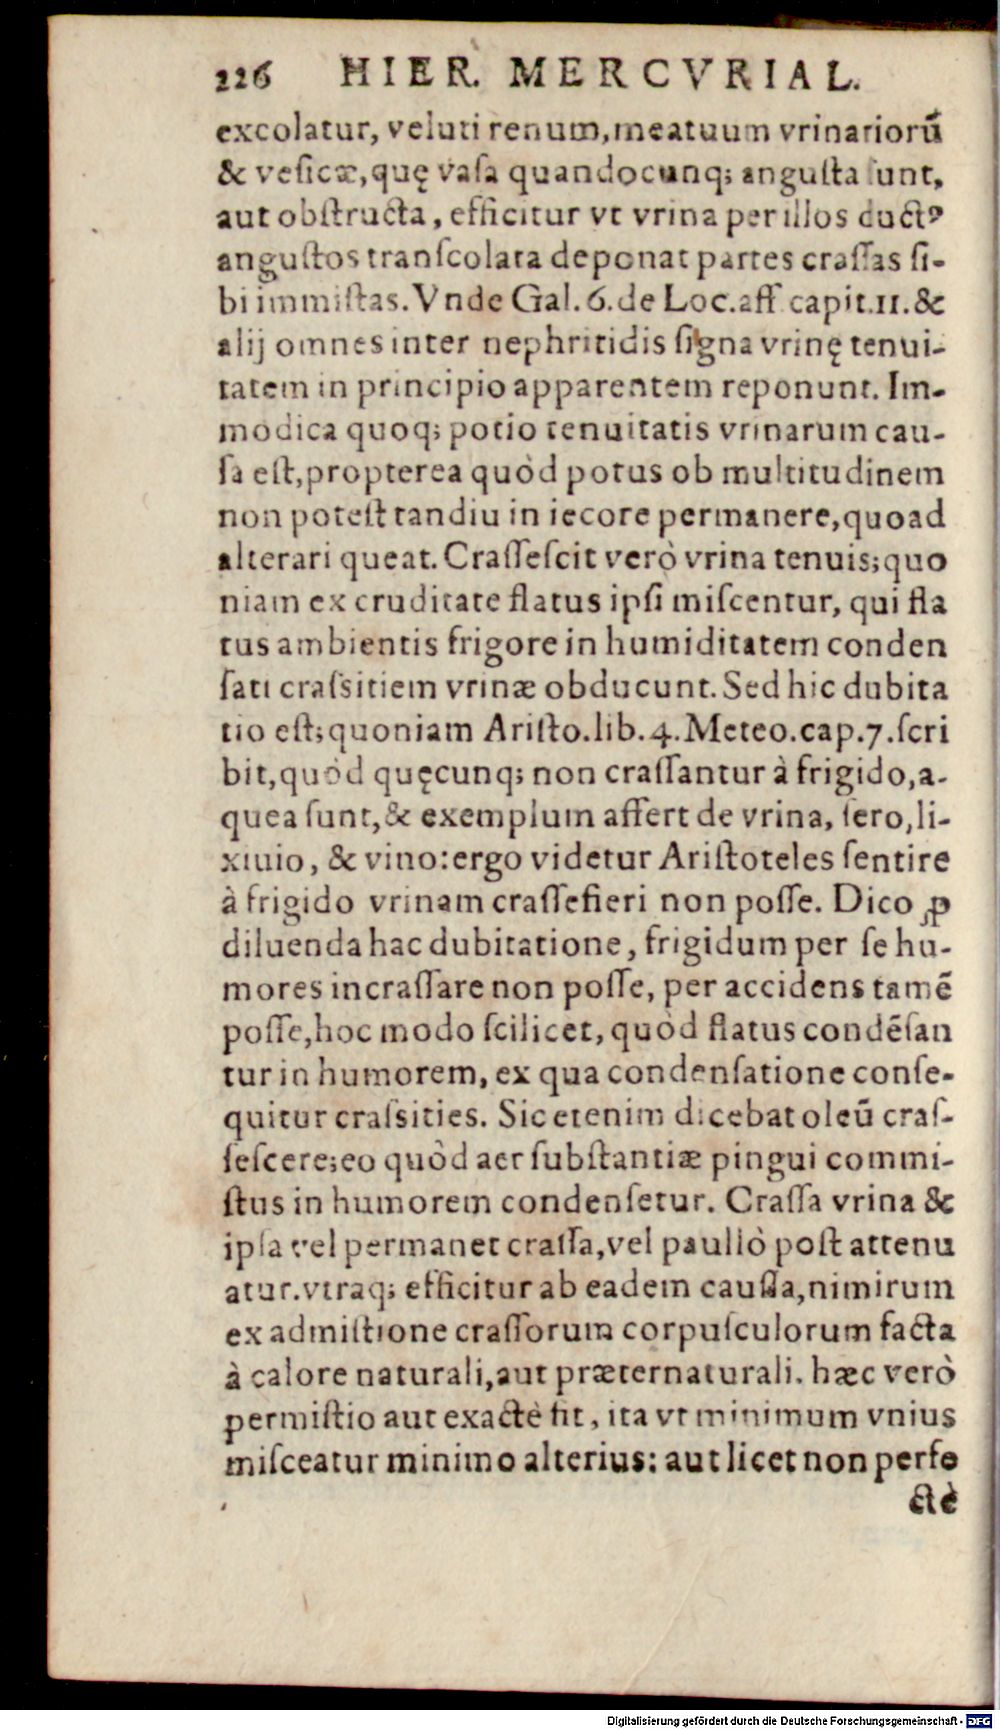 226 HIER. MERCVRIAL.
excolatur, veluti renum, meatuum vrinariorū
& vesicæ, quę vasa quandocunq; angusta sunt,
aut obstructa, efficitur vt vrina per illos duct⁹
angustos transcolata deponat partes crassas si-
bi immistas. Vnde Gal. 6. de Loc. aff. capit. 11. &
alij omnes inter nephritidis signa vrinę tenui-
tatem in principio apparentem reponunt. Im-
modica quoq; potio tenuitatis vrinarum cau-
sa est, propterea quòd potus ob multitudinem
non potest tandiu in iecore permanere, quoad
alterari queat. Crassescit verò vrina tenuis; quo
niam ex cruditate flatus ipsi miscentur, qui fla
tus ambientis frigore in humiditatem conden
sati crassitiem vrinæ obducunt. Sed hic dubita
tio est; quoniam Aristo. lib. 4. Meteo. cap. 7. scri
bit, quòd quęcunq; non crassantur à frigido, a-
quea sunt, & exemplum affert de vrina, sero, li-
xiuio, & vino: ergo videtur Aristoteles sentire
à frigido vrinam crassefieri non posse. Dico ꝓ
diluenda hac dubitatione, frigidum per se hu-
mores incrassare non posse, per accidens tamē
posse, hoc modo scilicet, quòd flatus condēsan
tur in humorem, ex qua condensatione conse-
quitur crassities. Sic etenim dicebat oleū cras-
sescere; eo quòd aer substantiæ pingui commi-
stus in humorem condensetur. Crassa vrina &
ipsa vel permanet crassa, vel paullò post attenu
atur. vtraq; efficitur ab eadem caussa, nimirum
ex admistione crassorum corpusculorum facta
à calore naturali, aut præternaturali. hæc verò
permistio aut exactè fit, ita vt minimum vnius
misceatur minimo alterius: aut licet non perfe
ctè
Digitalisierung gefördert durch die Deutsche Forschungsgemeinschaft - DFG